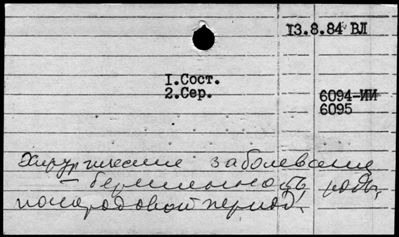 13.8.84 ВЛ
1.Сост.
2.Сер.
6094-ИИ
6095
Хирургические заболевания
— беременность, роды,
послеродовой период.